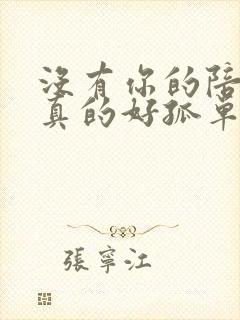 沒有你的陪
真的好孤單
張寧江